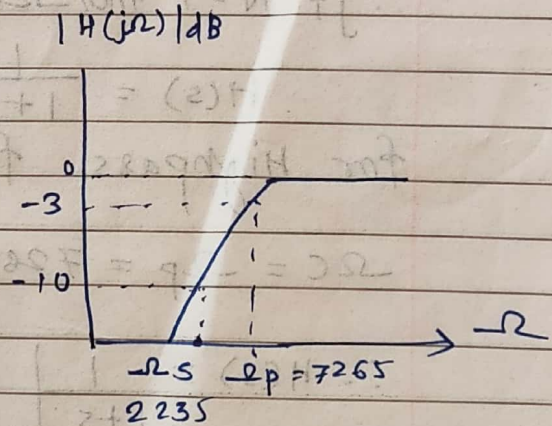 |H(jΩ)|dB
0
-3
-10
Ω
ΩS Ωp = 7265
2235